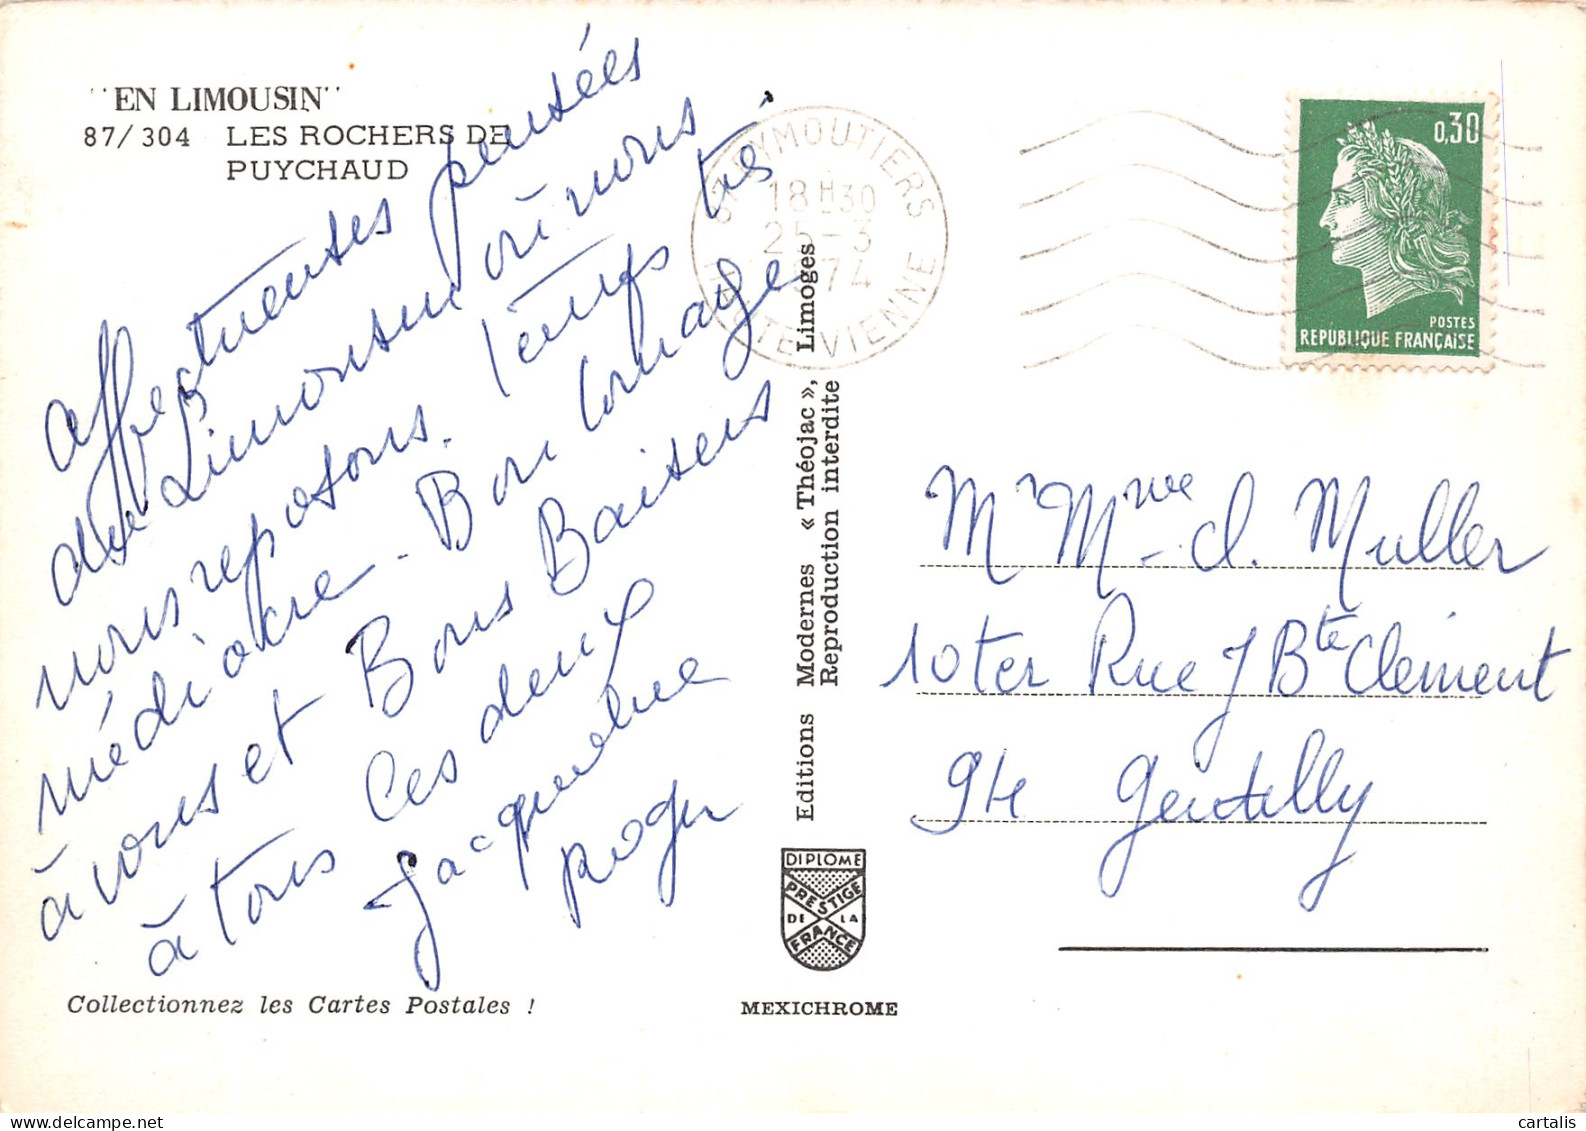 "EN LIMOUSIN"
87/304 LES ROCHERS DE
PUYCHAUD
Affectueuses pensées
du Limousin où nous
nous reposons. Temps très
médiocre. Bon courage
à vous et Bons Baisers
à tous les deux
Jacqueline
Roger
Collectionnez les Cartes Postales !
Editions Modernes « Théojac », Limoges
Reproduction interdite
DIPLOME
PRESTIGE
DE LA
FRANCE
MEXICHROME
EYMOUTIERS
18H30
25-3
1974
HTE VIENNE
0,30
POSTES
REPUBLIQUE FRANÇAISE
Mr Mme Cl. Muller
10 ter Rue J Bte Clément
Gentilly
cartalis